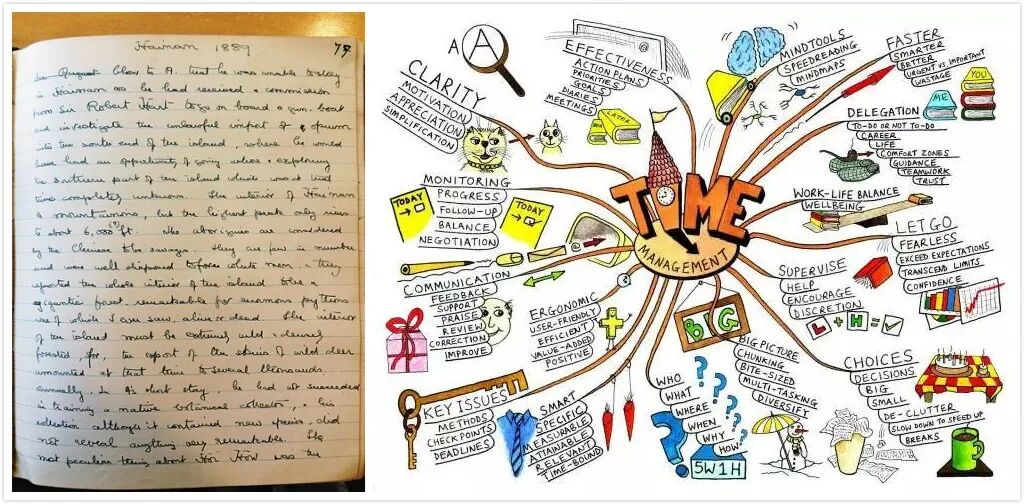 Hainan 1889
79
blow to A. that he was unable to stay
in Hainan as he had received a commission
from Sir Robert Hart to go on board a gun boat
and investigate the unlawful import of opium
into the south end of the island, where he would
have had an opportunity of going ashore & exploring
the southern part of the island which was at that
time completely unknown. The interior of Hainan
is mountainous, but the highest peak only rises
to about 6,000 ft. The aborigines are considered
by the Chinese to be savages. They are few in number
and were well disposed to white men & they
reported the whole interior of the island to be a
gigantic forest, remarkable for enormous pythons
one of which I ever saw, alive or dead. The interior
of the island must be extremely wild & densely
forested, for the export of the skins of wild deer
amounted at that time to several thousands
annually. In A's short stay, he had succeeded
in training a native botanical collector, & his
collection although it contained new species, did
not reveal anything very remarkable. The
most peculiar thing about Hoi How was the
A A
CLARITY
MOTIVATION
APPRECIATION
SIMPLIFICATION
EFFECTIVENESS
ACTION PLANS
PRIORITIES
GOALS
DIARIES
MEETINGS
LATER
MINDTOOLS
SPEEDREADING
MINDMAPS
FASTER
SMARTER
BETTER
URGENT VS. IMPORTANT
WASTAGE
YOU
ME
DELEGATION
TO-DO OR NOT TO-DO
CAREER
LIFE
COMFORT ZONES
GUIDANCE
TEAMWORK
TRUST
MONITORING
PROGRESS
FOLLOW-UP
BALANCE
NEGOTIATION
TODAY
TODAY
TIME
MANAGEMENT
WORK-LIFE BALANCE
WELLBEING
LET GO
FEARLESS
EXCEED EXPECTATIONS
TRANSCEND LIMITS
CONFIDENCE
COMMUNICATION
FEEDBACK
SUPPORT
PRAISE
REVIEW
CORRECTION
IMPROVE
ERGONOMIC
USER-FRIENDLY
EFFICIENT
VALUE-ADDED
POSITIVE
SUPERVISE
HELP
ENCOURAGE
DISCRETION
L + H = ✓
BIG
BIG PICTURE
CHUNKING
BITE-SIZED
MULTI-TASKING
DIVERSIFY
CHOICES
DECISIONS
BIG
SMALL
DE-CLUTTER
SLOW DOWN TO SPEED UP
BREAKS
KEY ISSUES
METHODS
CHECKPOINTS
DEADLINES
SMART
SPECIFIC
MEASURABLE
ATTAINABLE
RELEVANT
TIME-BOUND
WHO
WHAT
WHERE
WHEN
WHY
HOW
5W1H